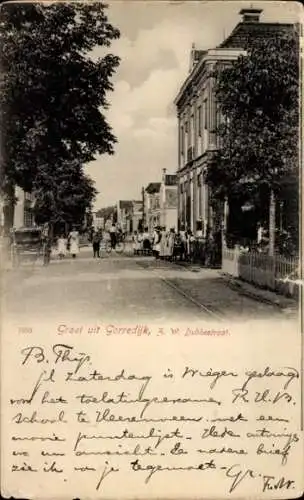 Groet uit Gorredijk, A. W. Dubbestraat.
B. Thijs.
j.l. Zaterdag is Wieger geslaagd
voor het toelatingsexamen, R. H. B.
school te Heerenveen met een
mooie puntenlijst. Heden ontvingen
we ons ansicht. Da nadere brief
zie ik van je tegemoet. Gr.
F. W.